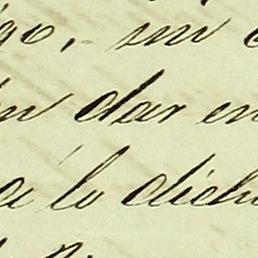 go, sin
n dar en
a lo dich